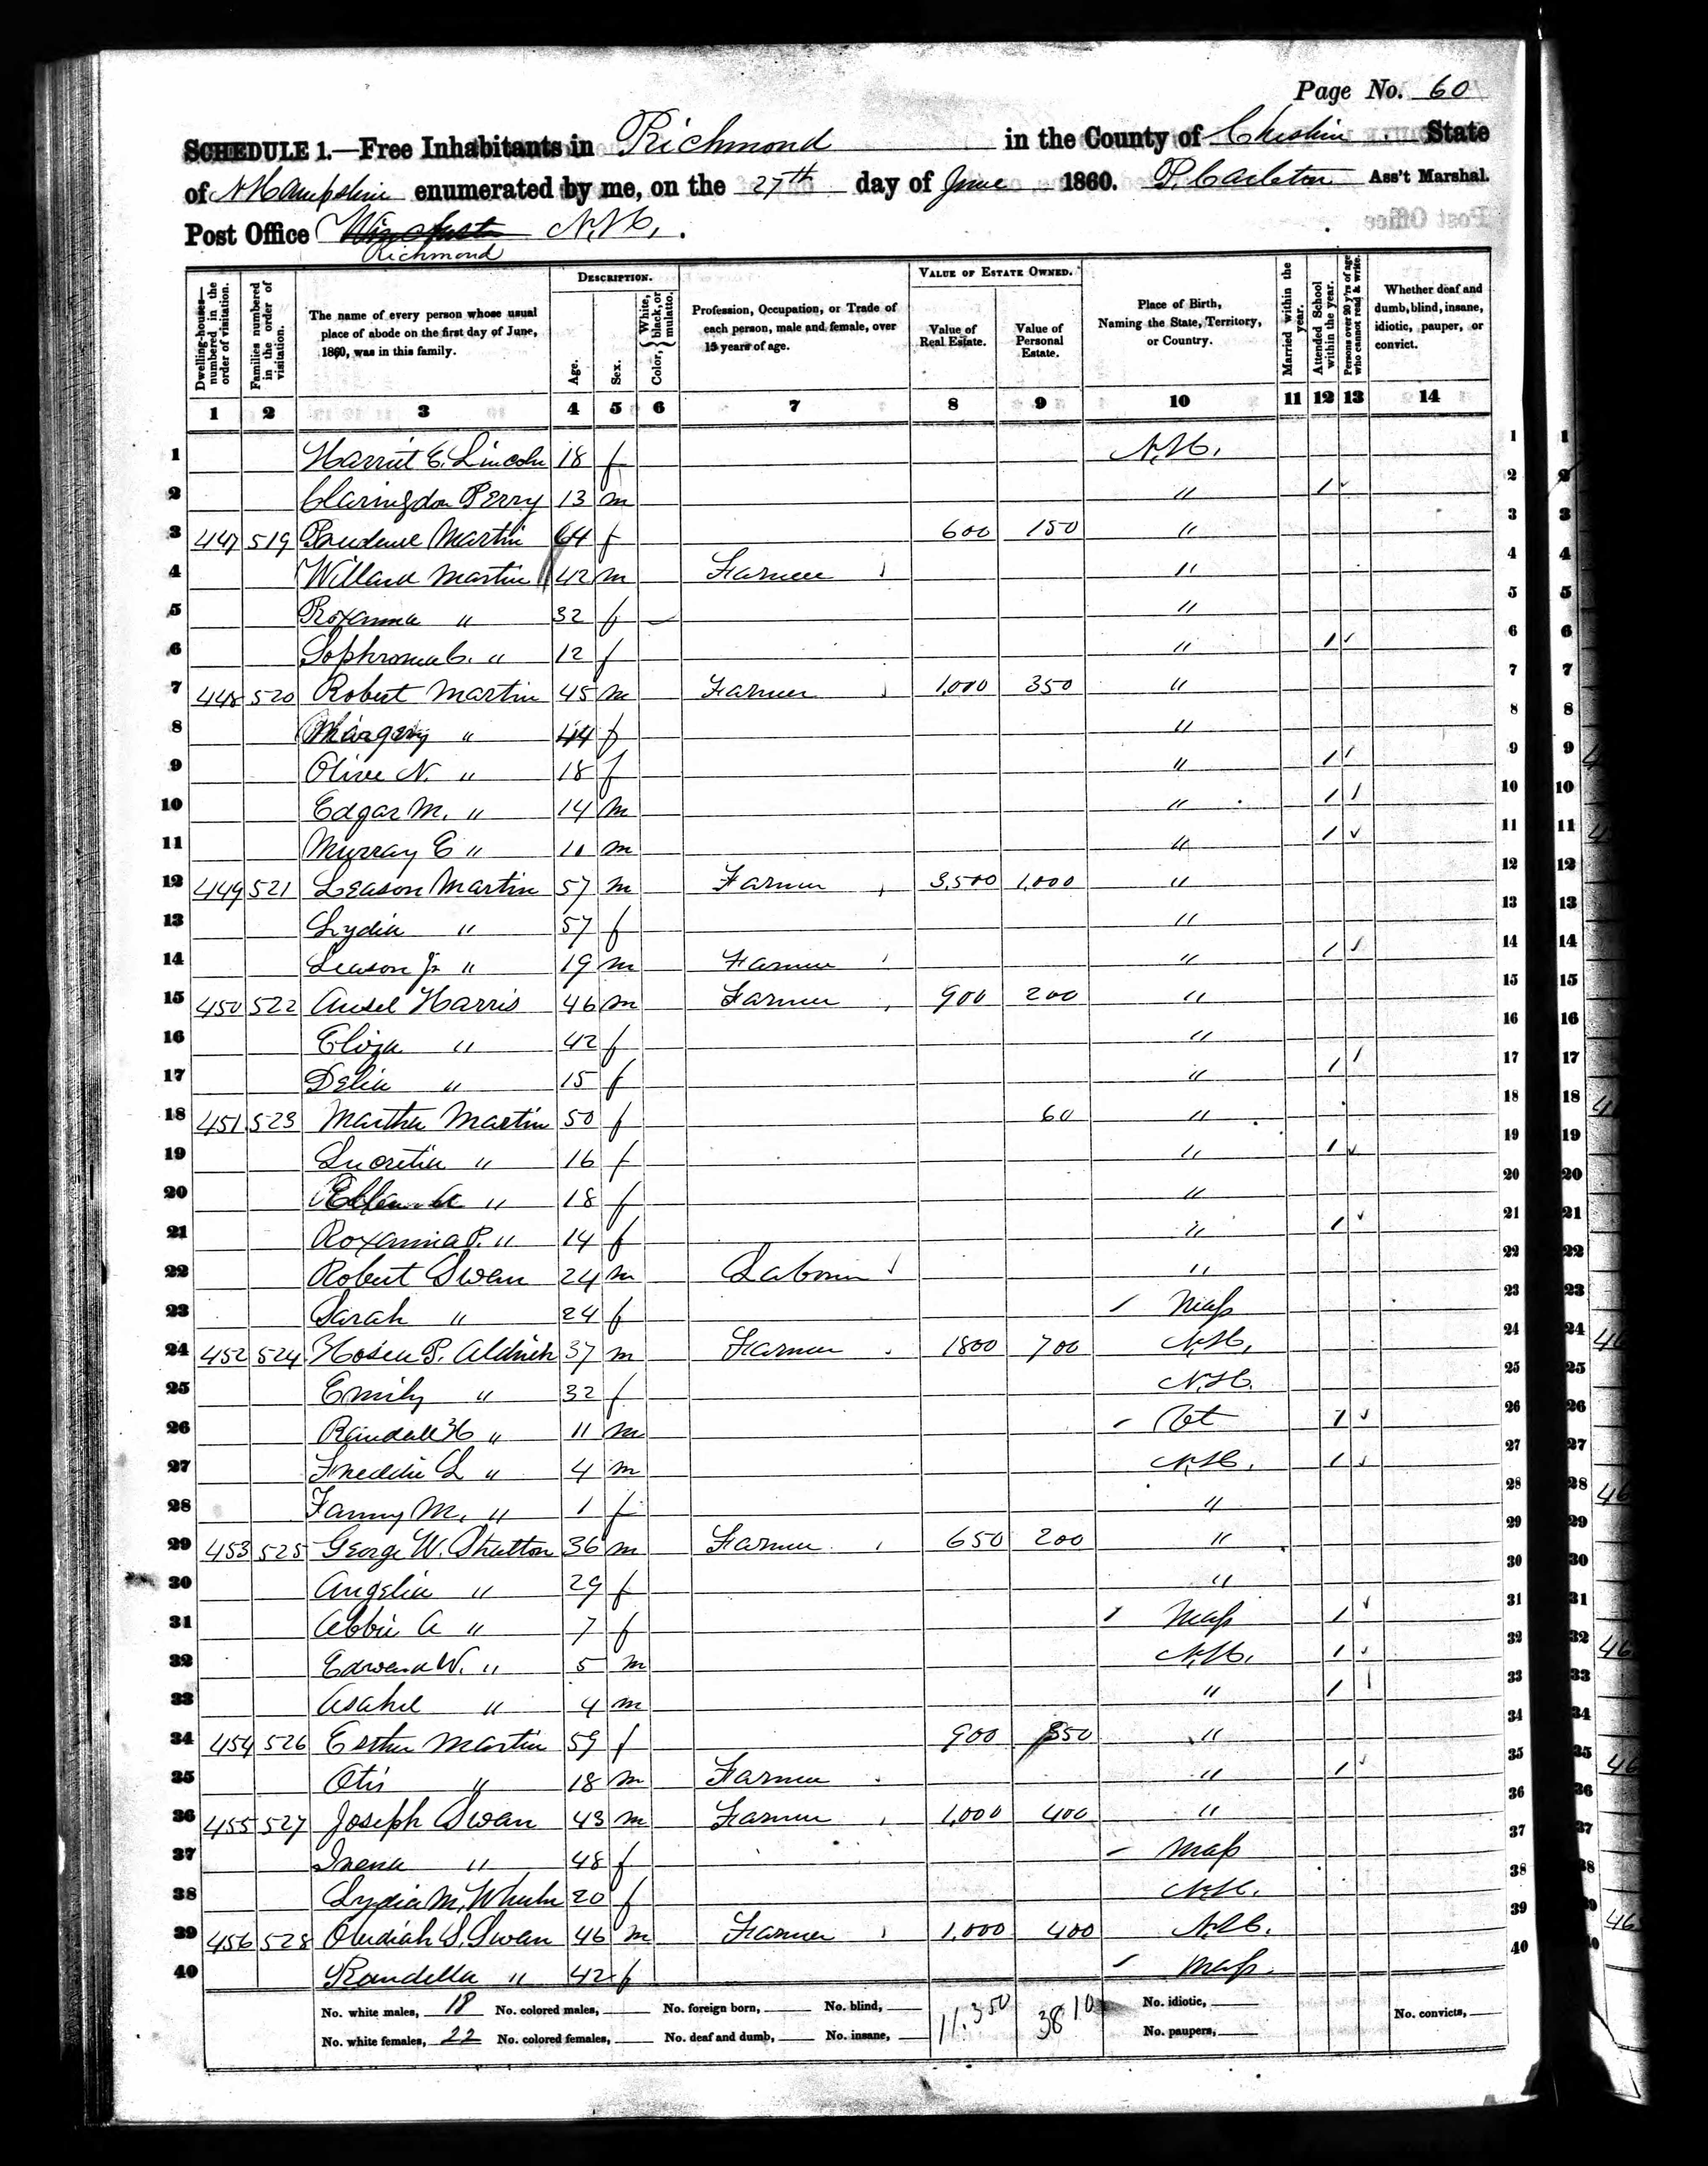 Page No. 60
SCHEDULE 1.—Free Inhabitants in Richmond in the County of Cheshire State
of N Hampshire enumerated by me, on the 27th day of June 1860. P. Carleton Ass't Marshal.
Post Office Winchester N.H.
Richmond
Dwelling-houses—numbered in the order of visitation.
Families numbered in the order of visitation.
The name of every person whose usual place of abode on the first day of June, 1860, was in this family.
DESCRIPTION.
Age.
Sex.
Color, { White, black, or mulatto.
Profession, Occupation, or Trade of each person, male and female, over 15 years of age.
VALUE OF ESTATE OWNED.
Value of Real Estate.
Value of Personal Estate.
Place of Birth, Naming the State, Territory, or Country.
Married within the year.
Attended School within the year.
Persons over 20 y'rs of age who cannot read & write.
Whether deaf and dumb, blind, insane, idiotic, pauper, or convict.
1 2 3 4 5 6 7 8 9 10 11 12 13 14
1 Harriet E. Lincoln 18 f N.H. 1
2 Claringdon Perry 13 m " 1 2
3 447 519 Prudence Martin 64 f 600 150 " 3
4 Willard Martin 42 m Farmer " 4
5 Roxanna " 32 f " 5
6 Sophronia C. " 12 f " 1 6
7 448 520 Robert Martin 45 m Farmer 1,000 350 " 7
8 Margery " 44 f " 8
9 Olive N. " 18 f " 1 9
10 Edgar M. " 14 m " 1 10
11 Murray E " 11 m " 1 11
12 449 521 Leason Martin 57 m Farmer 3,500 1,000 " 12
13 Lydia " 57 f " 13
14 Leason Jr " 19 m Farmer " 1 14
15 450 522 Ansel Harris 46 m Farmer 900 200 " 15
16 Eliza " 42 f " 16
17 Delia " 15 f " 1 17
18 451 523 Martha Martin 50 f 60 " 18
19 Lucretia " 16 f " 1 19
20 Ellen " 18 f " 20
21 Roxanna P. " 14 f " 1 21
22 Robert Swan 24 m Laborer " 22
23 Sarah " 24 f Mass 23
24 452 524 Hosea P. Aldrich 37 m Farmer 1800 700 N.H. 24
25 Emily " 32 f N.H. 25
26 Randall H " 11 m Vt 1 26
27 Freddie L " 4 m N.H. 1 27
28 Fanny M. " 1 f " 28
29 453 525 George W. Stratton 36 m Farmer 650 200 " 29
30 Angelia " 29 f " 30
31 Abbie A " 7 f Mass 1 31
32 Edward W. " 5 m N.H. 1 32
33 Asahel " 4 m " 1 33
34 454 526 Esther Martin 59 f 900 350 " 34
35 Otis " 18 m Farmer " 1 35
36 455 527 Joseph Swan 43 m Farmer 1,000 400 " 36
37 Irena " 48 f Mass 37
38 Lydia M. Wheeler 20 f N.H. 38
39 456 528 Obadiah S. Swan 46 m Farmer 1,000 400 N.H. 39
40 Randella " 42 f Mass. 40
No. white males, 18 No. colored males, No. foreign born, No. blind, 11,350 3810 No. idiotic, No. convicts,
No. white females, 22 No. colored females, No. deaf and dumb, No. insane, No. paupers,